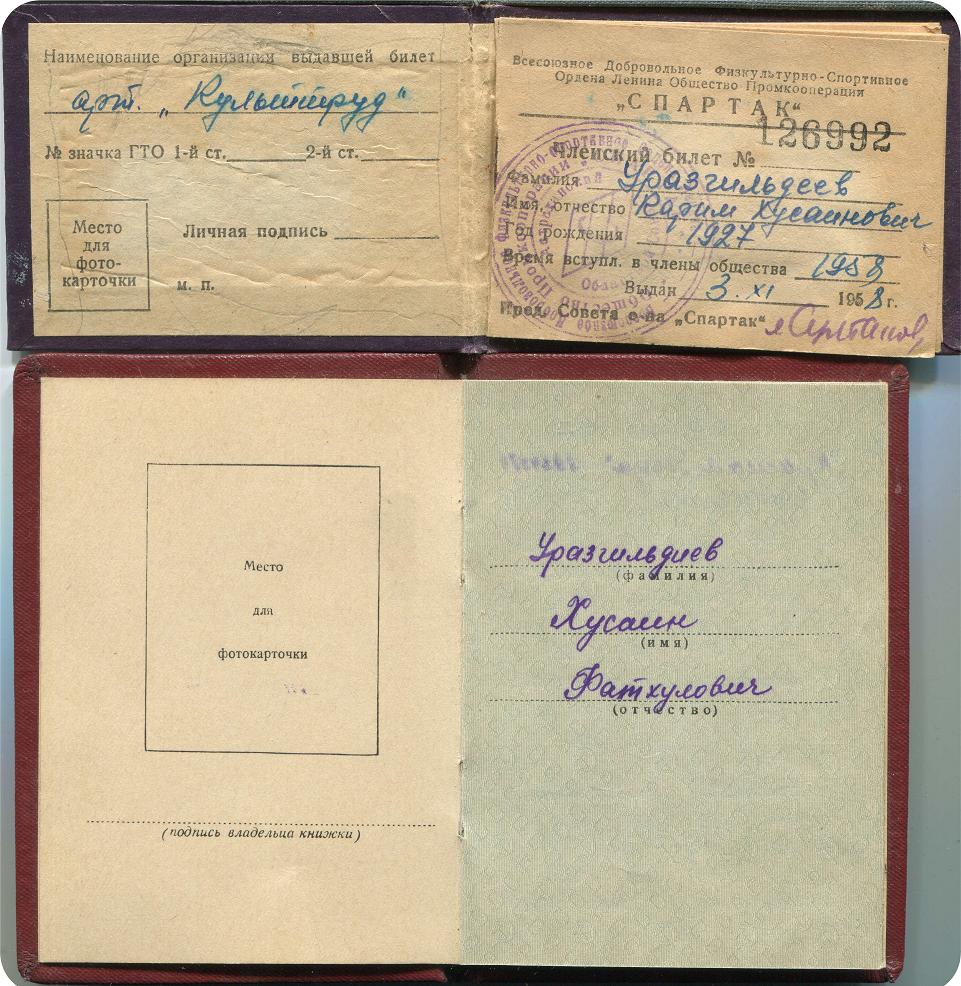 Наименование организации выдавшей билет
арт. „Культтруд"
№ значка ГТО 1-й ст. 2-й ст.
Место
для
фото-
карточки
Личная подпись
м. п.
Всесоюзное Добровольное Физкультурно-Спортивное
Ордена Ленина Общество Промкооперации
„СПАРТАК"
126992
Членский билет №
Фамилия Уразгильдеев
Имя, отчество Карим Хусаинович
Год рождения 1927
Время вступл. в члены общества 1958
Выдан 3. XI 1958 г.
Пред. Совета о-ва „Спартак"
Место
для
фотокарточки
(подпись владельца книжки)
Уразгильдиев
(фамилия)
Хусаин
(имя)
Фатхулович
(отчество)